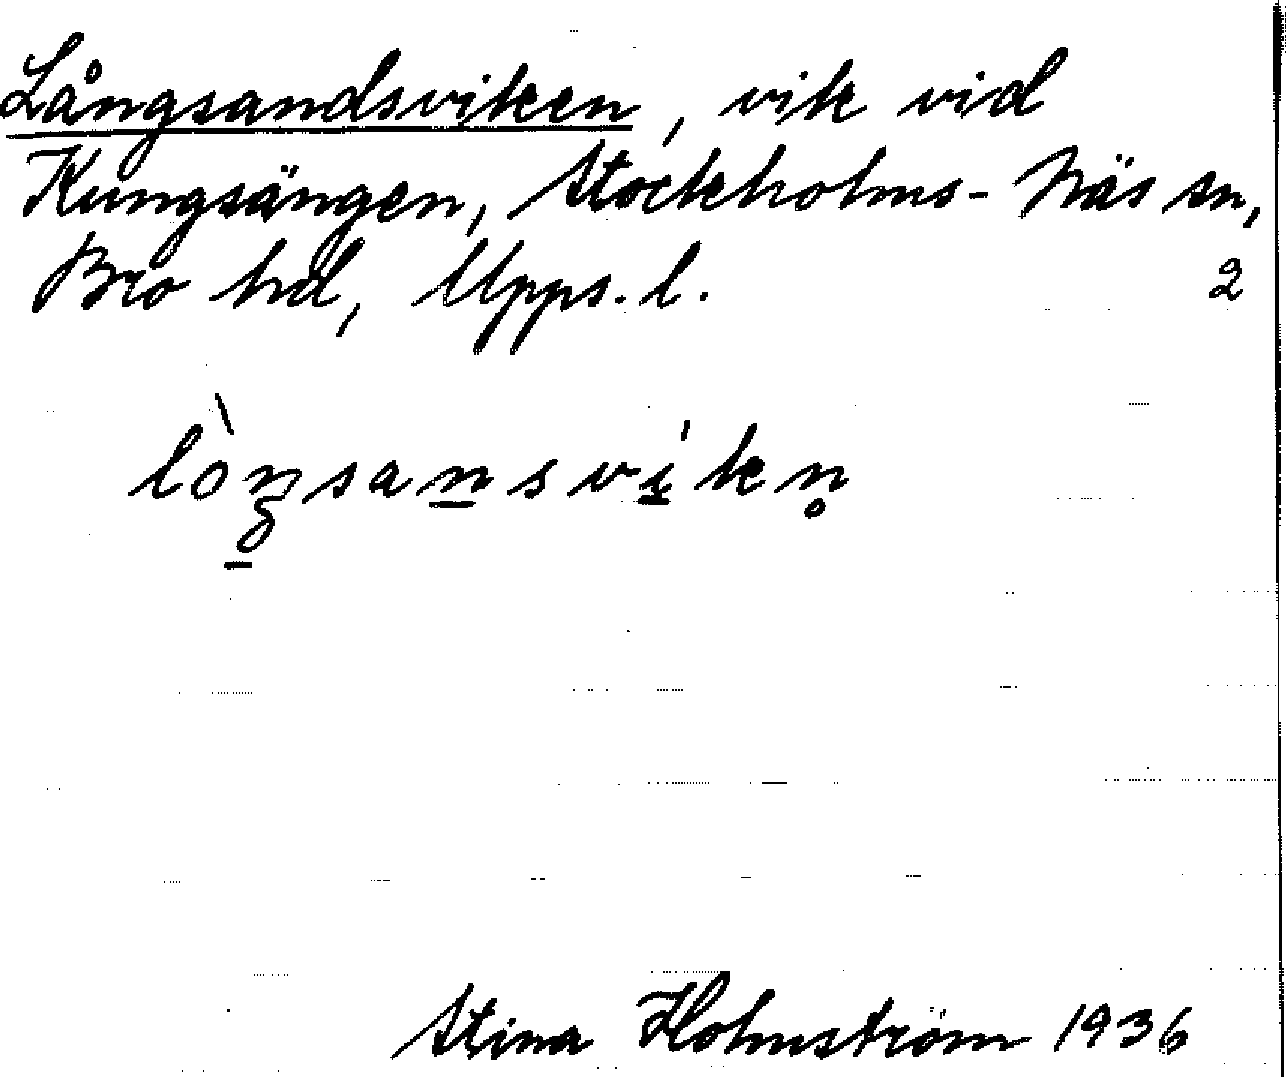 Långsandsviken, vik vid
Kungsängen, Stockholms-Näs sn,
Bro hd, Upps. l. 2
lòŋsansvíkn̥
Stina Holmström 1936